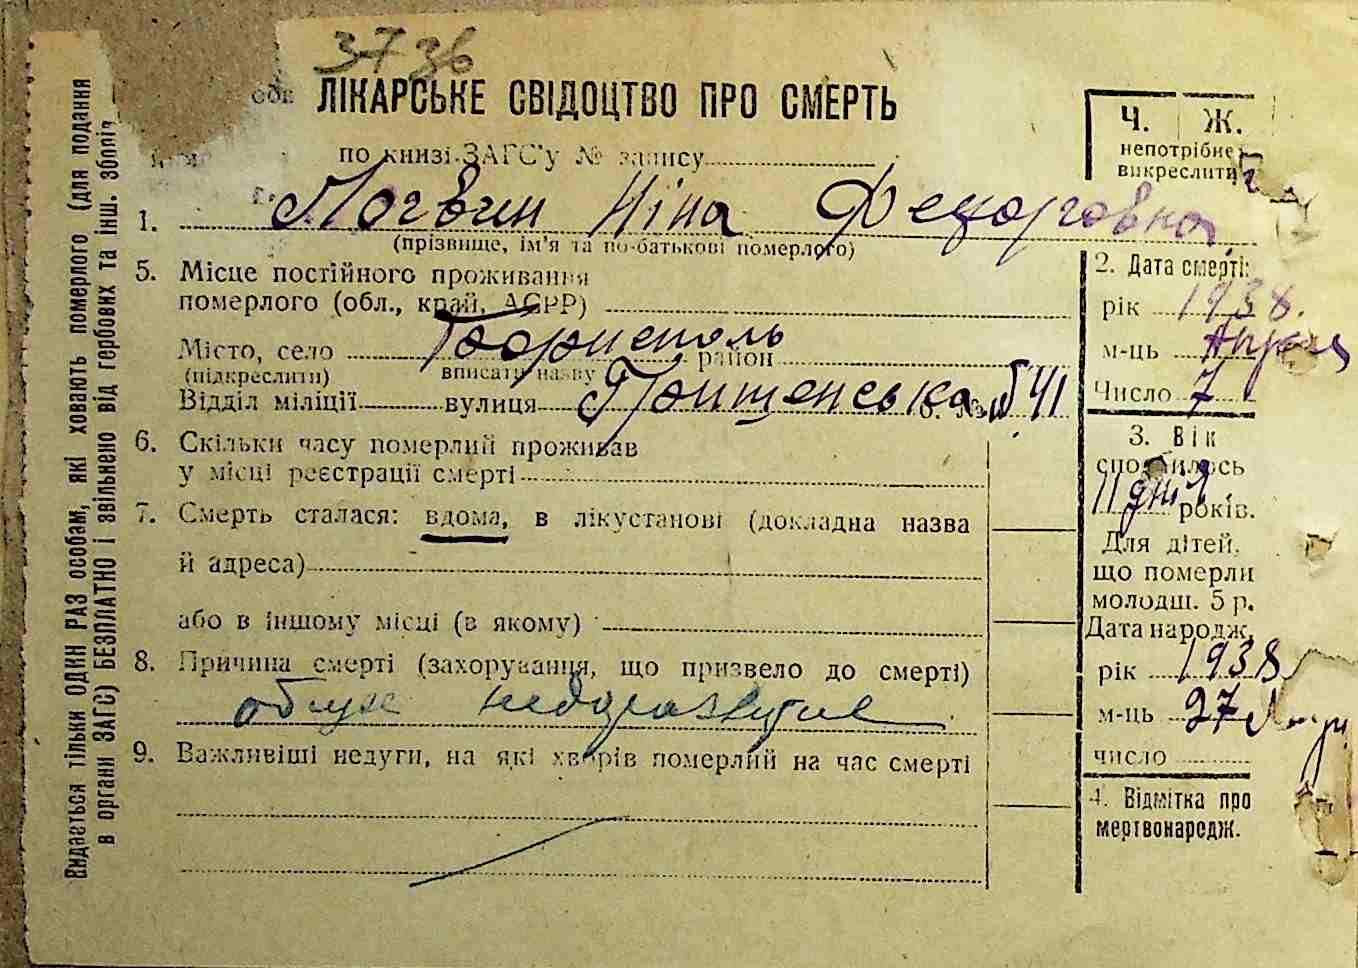 3736
ЛІКАРСЬКЕ СВІДОЦТВО ПРО СМЕРТЬ
по книзі ЗАГС'у № запису
1. Логвин Ніна Федоровна
(прізвище, ім'я та по-батькові померлого)
5. Місце постійного проживання
померлого (обл., край, АСРР)
Місто, село Бориспіль район
(підкреслити) вписати назву
Відділ міліції вулиця 41
6. Скільки часу померлий проживав
у місці реєстрації смерті
7. Смерть сталася: вдома, в лікустанові (докладна назва
й адреса)
або в іншому місці (в якому)
8. Причина смерті (захорування, що призвело до смерті)
9. Важливіші недуги, на які хворів померлий на час смерті
Ч. Ж.
непотрібне
викреслити
2. Дата смерті:
рік 1938.
м-ць
Число 7
3. Вік
сповнилось
11 днів років.
Для дітей,
що померли
молодш. 5 р.
Дата народж.
рік 1938
м-ць 27
число
4. Відмітка про
мертвонародж.
Видається тільки ОДИН РАЗ особам, які ховають померлого (для подання
в органи ЗАГС) БЕЗПЛАТНО і звільнено від гербових та інш. зборів